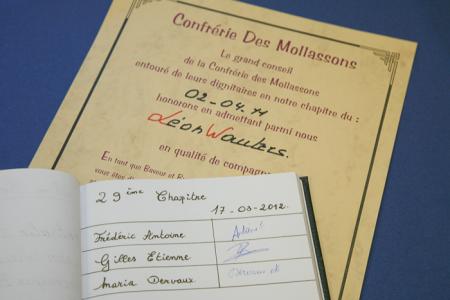 Confrérie Des Mollassons
Le grand conseil
de la Confrérie des Mollassons
entouré de leurs dignitaires en notre chapitre du :
02-04.11
honorons en admettant parmi nous
Léon Wauters.
en qualité de compagn
En tant que Baveur et B
vous êtes
29ème Chapitre
17-03-2012.
Frédéric Antoine
Gilles Etienne
Maria Dervaux